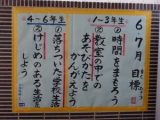 6 7月 目標
1~3年生
①時間をまもろう
②教室の中での
あそびかたを
かんがえよう
4~6年生
①落ちついた学校生活
②けじめのある生活を
しよう